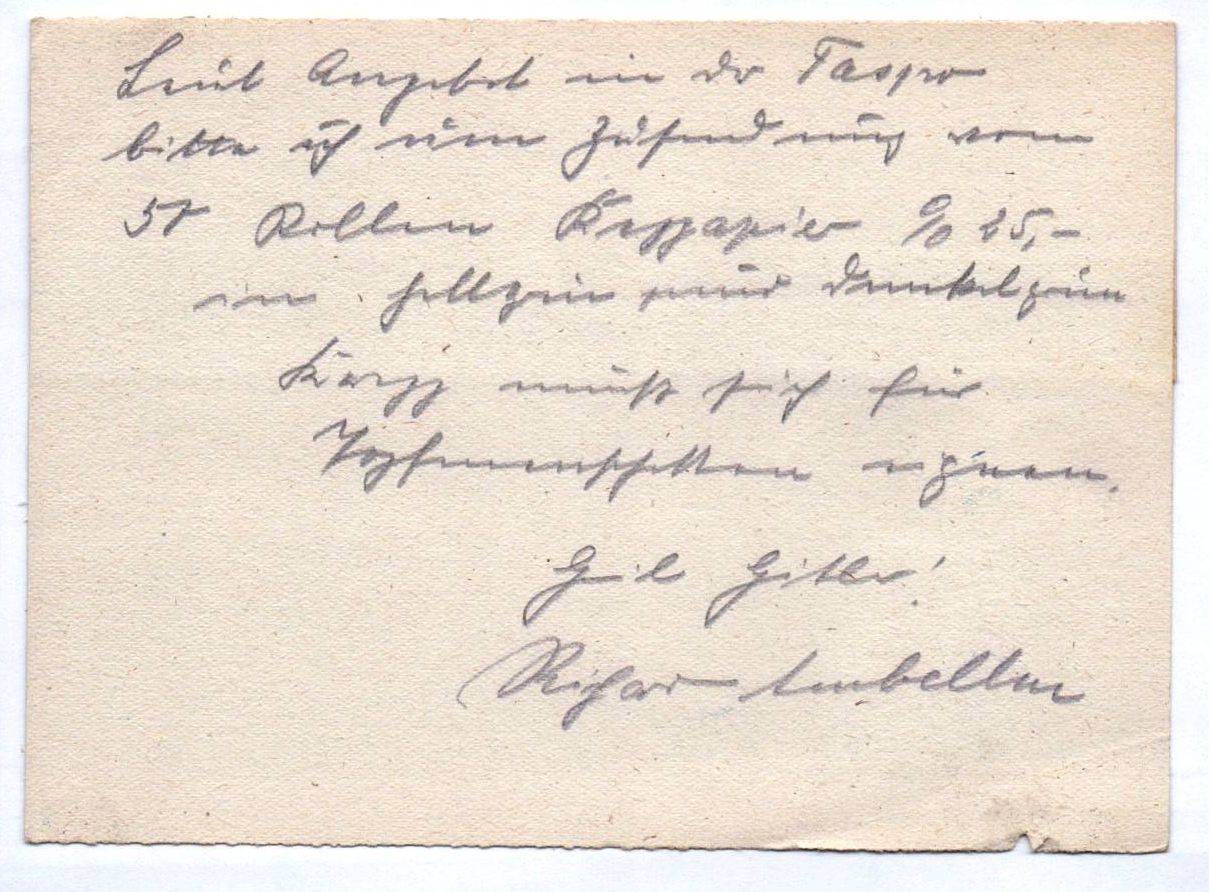 Laut Angebot in der Taspo
bitte ich um Zusendung von
50 Rollen Krepppapier % 25,-
in hellgrün und dunkelgrün
Krepp muß sich für
Topfmanschetten eignen.
Heil Hitler!
Richard